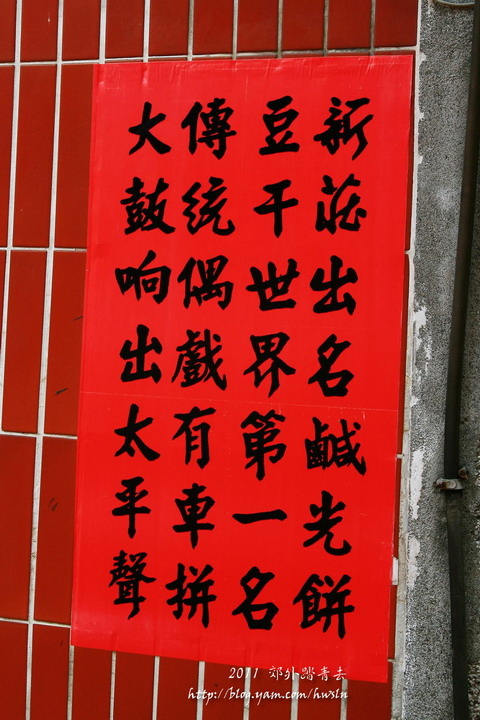 新莊出名鹹光餅
豆干世界第一名
傳統偶戲有車拼
大鼓响出太平聲
2011 郊外踏青去
http://blog.yam.com/hwsln